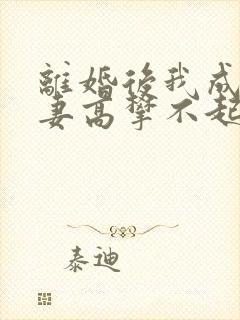 離婚後我成
妻高攀不起
泰迪